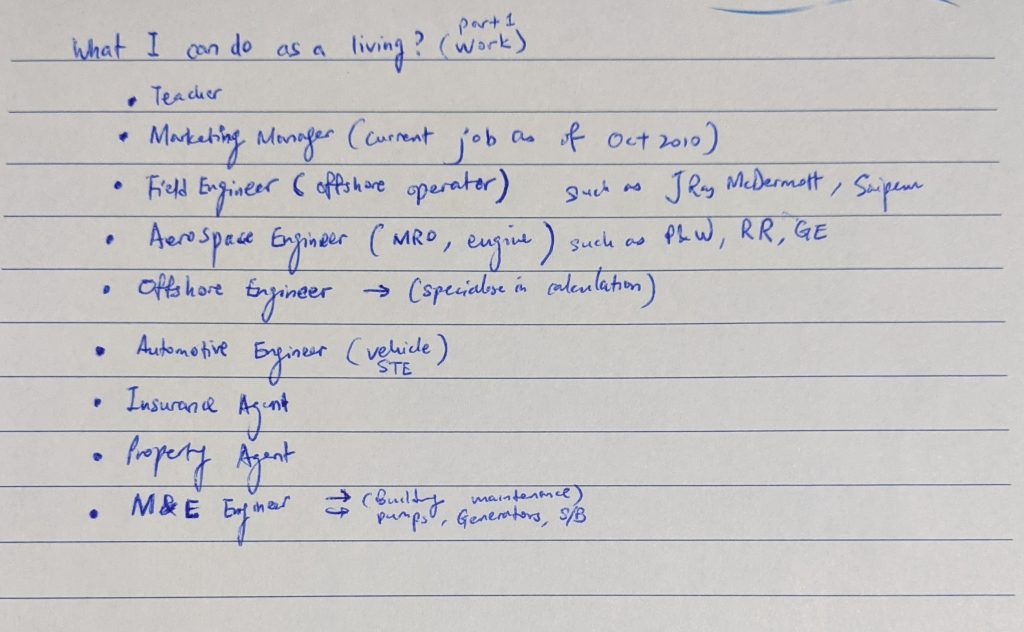 What I can do as a living? (Part 1 Work)
• Teacher
• Marketing Manager (current job as of Oct 2010)
• Field Engineer (offshore operator) such as J Ray McDermott, Saipem
• Aerospace Engineer (MRO, engine) such as P&W, RR, GE
• Offshore Engineer → (specialise in calculation)
• Automotive Engineer (vehicle)
STE
• Insurance Agent
• Property Agent
• M&E Engineer → (Building maintenance)
→ pumps, Generators, S/B